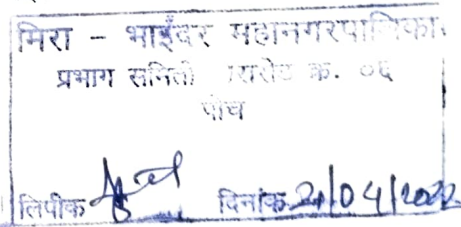 मिरा - भाईंदर महानगरपालिका
प्रभाग समिती क. ०६
पोच
लिपीक दिनांक 21/04/2022